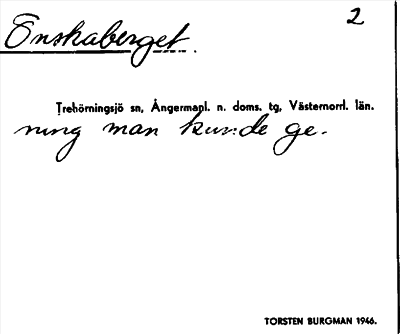 2
Önskaberget.
Trehörningsjö sn, Ångermanl. n. doms. tg, Västernorrl. län.
ning man kunde ge.
TORSTEN BURGMAN 1946.